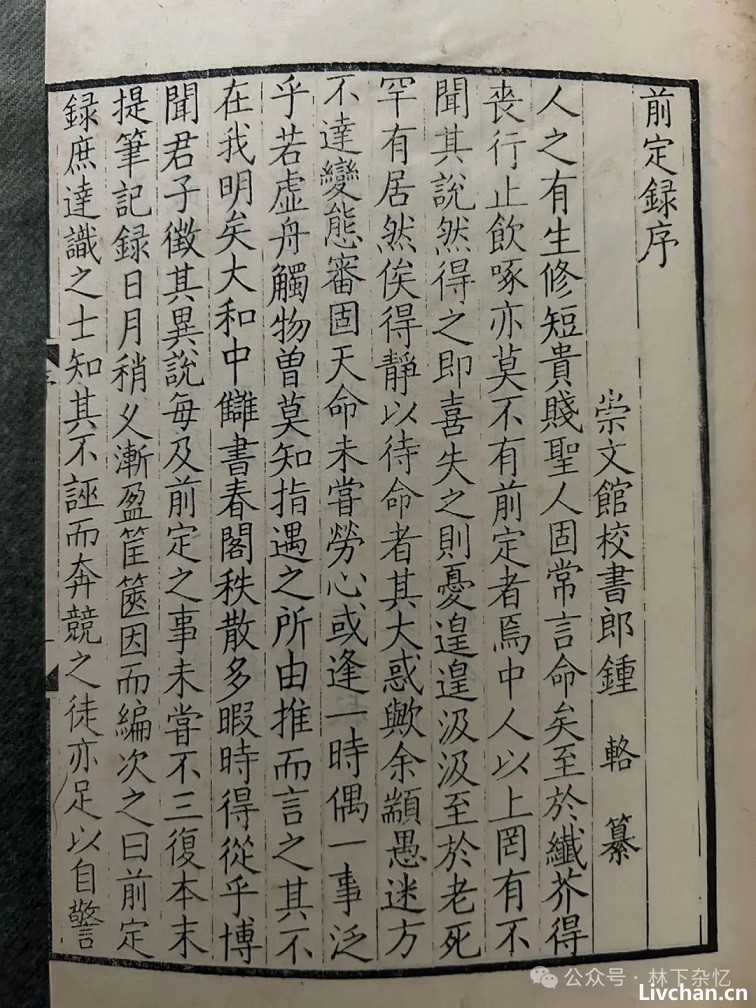 前定録序
崇文館校書郎鍾 輅 纂
人之有生修短貴賤聖人固常言命矣至於纖芥得
喪行止飲啄亦莫不有前定者焉中人以上罔有不
聞其說然得之即喜失之則憂遑遑汲汲至於老死
罕有居然俟得靜以待命者其大惑歟余顓愚迷方
不達變態審固天命未嘗勞心或逢一時偶一事泛
乎若虛舟觸物曽莫知指遇之所由推而言之其不
在我明矣大和中讎書春閣秩散多暇時得從乎博
聞君子徵其異說每及前定之事未嘗不三復本末
提筆記録日月稍乆漸盈筐篋因而編次之曰前定
録庶達識之士知其不誣而奔競之徒亦足以自警
公众号·林下杂忆
Livchan.cn